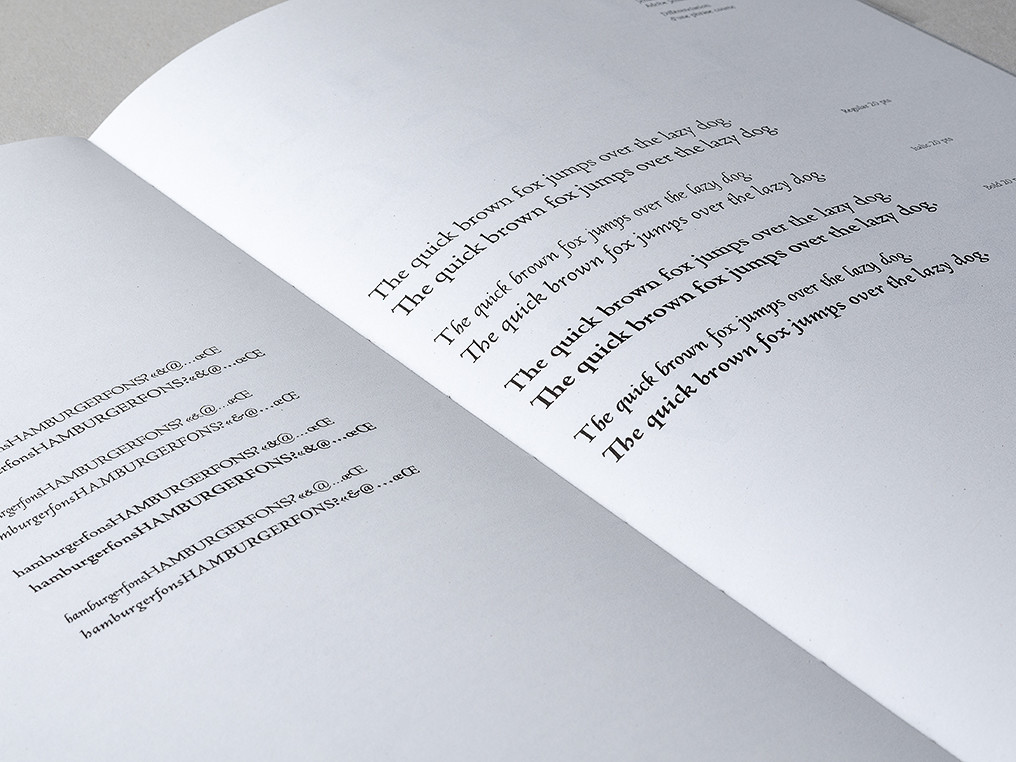 nsHAMBURGERFONS?«&@…œŒ
erfonsHAMBURGERFONS?«&@…œŒ
urgerfonsHAMBURGERFONS? «&@…œŒ
mburgerfonsHAMBURGERFONS? «&@…œŒ
hamburgerfonsHAMBURGERFONS? «&@…œŒ
hamburgerfonsHAMBURGERFONS? «&@…œŒ
hamburgerfonsHAMBURGERFONS? «&@…œŒ
hamburgerfonsHAMBURGERFONS? «&@…œŒ
Différenciation
d'une phrase courte
Regular 20 pts
The quick brown fox jumps over the lazy dog.
The quick brown fox jumps over the lazy dog.
Italic 20 pts
The quick brown fox jumps over the lazy dog.
The quick brown fox jumps over the lazy dog.
Bold 20
The quick brown fox jumps over the lazy dog.
The quick brown fox jumps over the lazy dog.
The quick brown fox jumps over the lazy dog.
The quick brown fox jumps over the lazy dog.